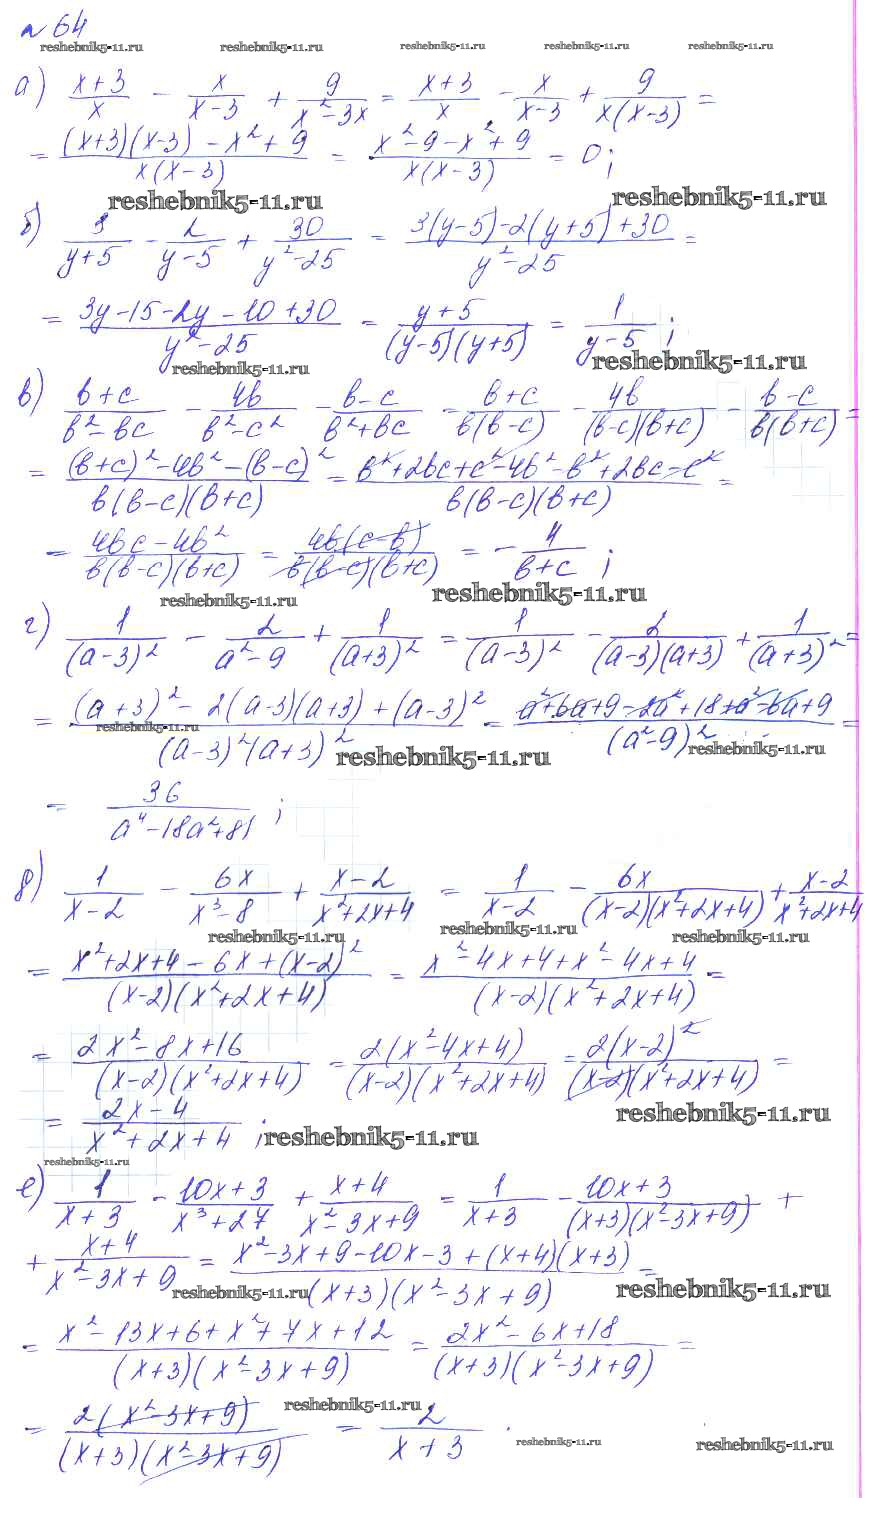 № 64
reshebnik5-11.ru reshebnik5-11.ru reshebnik5-11.ru reshebnik5-11.ru reshebnik5-11.ru
а) (x+3)/x - x/(x-3) + 9/(x²-3x) = (x+3)/x - x/(x-3) + 9/(x(x-3)) =
= ((x+3)(x-3) - x² + 9)/(x(x-3)) = (x²-9-x²+9)/(x(x-3)) = 0;
reshebnik5-11.ru reshebnik5-11.ru
б) 3/(y+5) - 2/(y-5) + 30/(y²-25) = (3(y-5)-2(y+5)+30)/(y²-25) =
= (3y-15-2y-10+30)/(y²-25) = (y+5)/((y-5)(y+5)) = 1/(y-5);
reshebnik5-11.ru reshebnik5-11.ru
в) (b+c)/(b²-bc) - 4b/(b²-c²) - (b-c)/(b²+bc) = (b+c)/(b(b-c)) - 4b/((b-c)(b+c)) - (b-c)/(b(b+c)) =
= ((b+c)²-4b²-(b-c)²)/(b(b-c)(b+c)) = (b²+2bc+c²-4b²-b²+2bc-c²)/(b(b-c)(b+c)) =
= (4bc-4b²)/(b(b-c)(b+c)) = (4b(c-b))/(b(b-c)(b+c)) = - 4/(b+c);
reshebnik5-11.ru reshebnik5-11.ru
г) 1/(a-3)² - 2/(a²-9) + 1/(a+3)² = 1/(a-3)² - 2/((a-3)(a+3)) + 1/(a+3)² =
= ((a+3)²-2(a-3)(a+3)+(a-3)²)/((a-3)²(a+3)²) = (a²+6a+9-2a²+18+a²-6a+9)/(a²-9)² =
reshebnik5-11.ru reshebnik5-11.ru reshebnik5-11.ru
= 36/(a⁴-18a²+81);
д) 1/(x-2) - 6x/(x³-8) + (x-2)/(x²+2x+4) = 1/(x-2) - 6x/((x-2)(x²+2x+4)) + (x-2)/(x²+2x+4)
reshebnik5-11.ru reshebnik5-11.ru reshebnik5-11.ru
= (x²+2x+4-6x+(x-2)²)/((x-2)(x²+2x+4)) = (x²-4x+4+x²-4x+4)/((x-2)(x²+2x+4)) =
= (2x²-8x+16)/((x-2)(x²+2x+4)) = (2(x²-4x+4))/((x-2)(x²+2x+4)) = (2(x-2)²)/((x-2)(x²+2x+4)) =
reshebnik5-11.ru
= (2x-4)/(x²+2x+4); reshebnik5-11.ru
reshebnik5-11.ru
е) 1/(x+3) - (10x+3)/(x³+27) + (x+4)/(x²-3x+9) = 1/(x+3) - (10x+3)/((x+3)(x²-3x+9)) +
+ (x+4)/(x²-3x+9) = (x²-3x+9-10x-3+(x+4)(x+3))/((x+3)(x²-3x+9)) =
reshebnik5-11.ru reshebnik5-11.ru
= (x²-13x+6+x²+7x+12)/((x+3)(x²-3x+9)) = (2x²-6x+18)/((x+3)(x²-3x+9)) =
reshebnik5-11.ru
= (2(x²-3x+9))/((x+3)(x²-3x+9)) = 2/(x+3).
reshebnik5-11.ru reshebnik5-11.ru